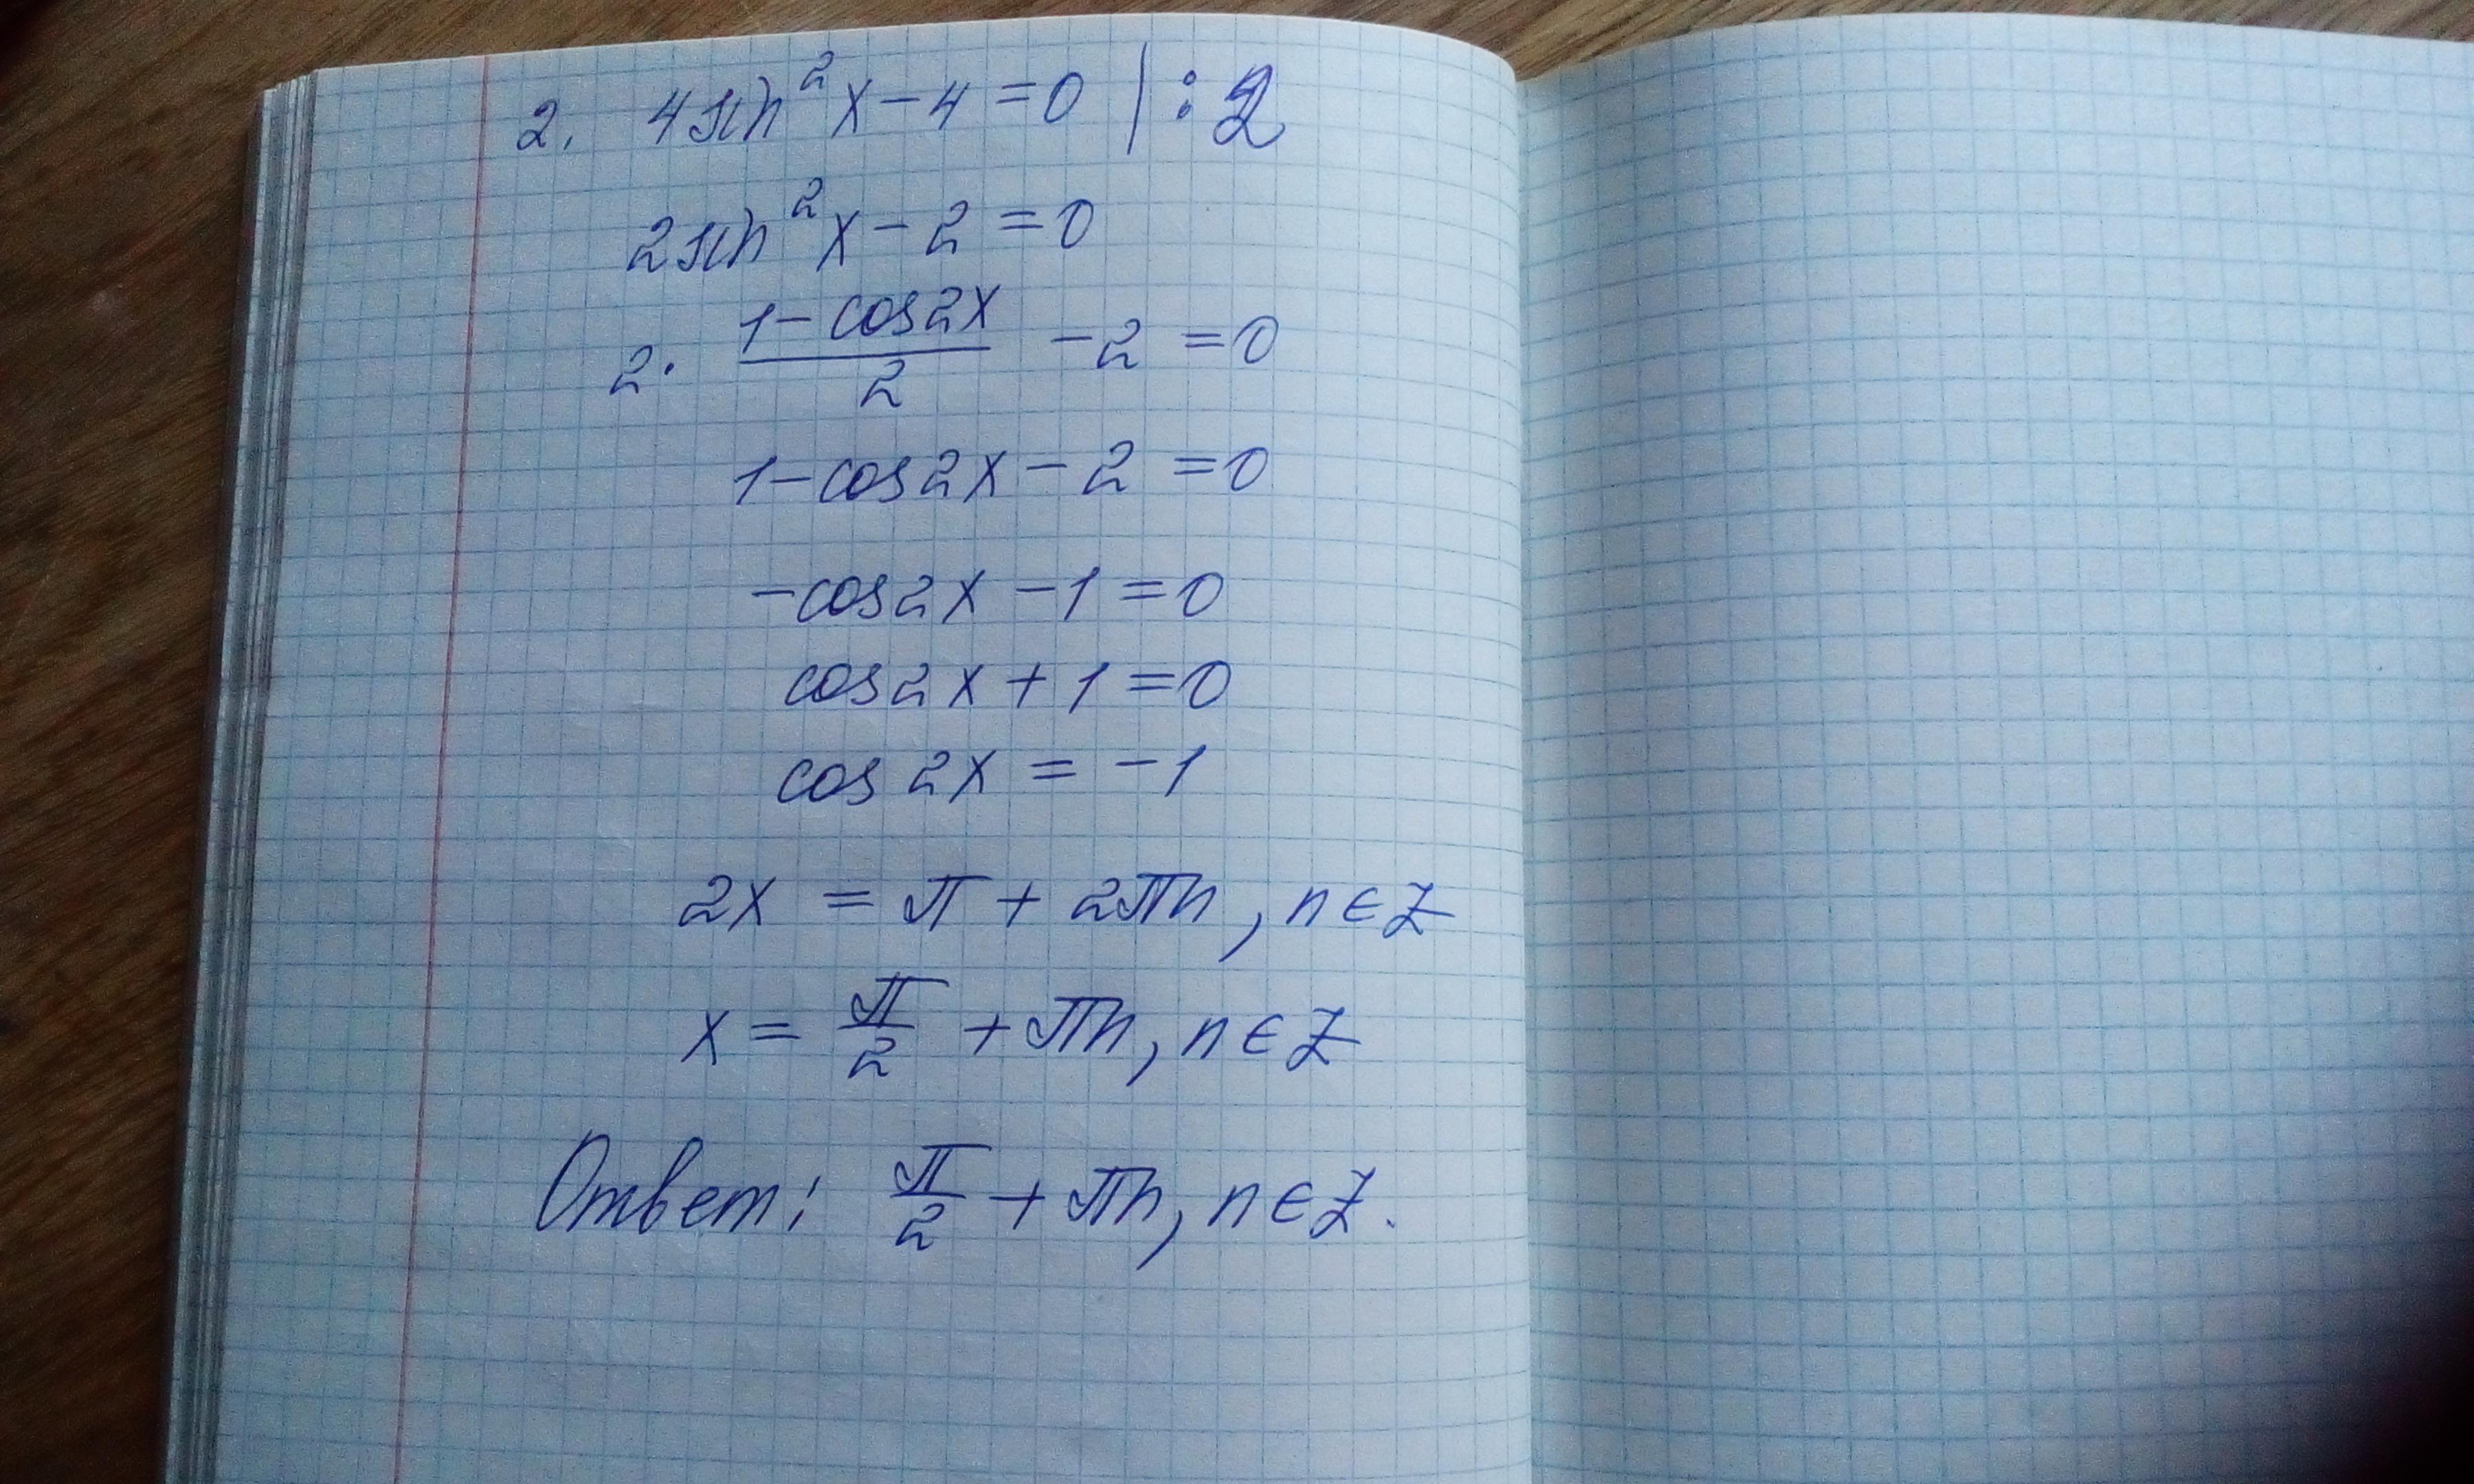 2. 4sin²x - 4 = 0 | : 2
2sin²x - 2 = 0
2 · (1 - cos2x)/2 - 2 = 0
1 - cos2x - 2 = 0
-cos2x - 1 = 0
cos2x + 1 = 0
cos 2x = -1
2x = π + 2πn, n ∈ Z
x = π/2 + πn, n ∈ Z
Ответ: π/2 + πn, n ∈ Z.